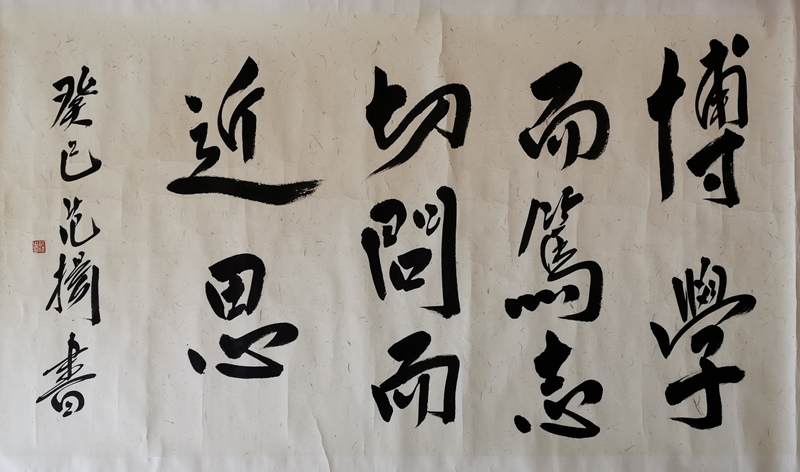 博學
而篤志
切問而
近思
癸巳范揚書